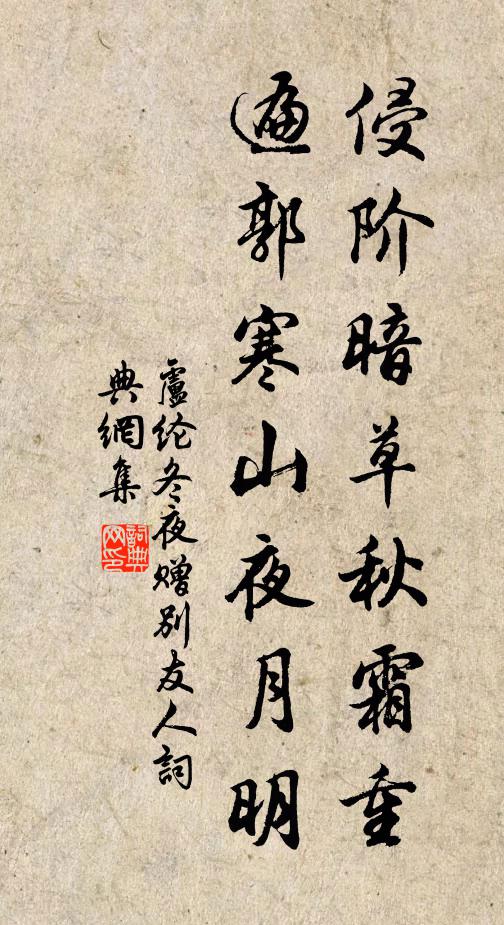 侵阶暗草秋霜重
遍郭寒山夜月明
盧纶冬夜赠别友人詞
典網集
詞典
网印